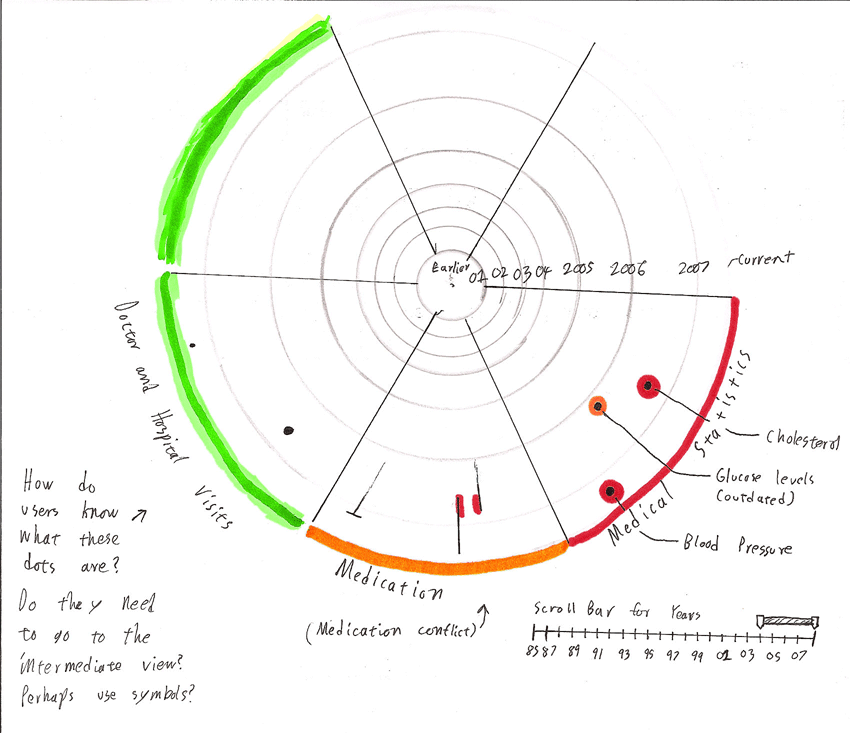 Earlier
01 02 03 04 2005 2006 2007 Current
Doctor and Hospital Visits
Medical Statistics
Cholesterol
Glucose levels
(outdated)
Blood Pressure
Medication
(Medication conflict)
How do
users know
what these
dots are?
Do they need
to go to the
intermediate view?
Perhaps use symbols?
Scroll Bar for Years
85 87 89 91 93 95 97 99 01 03 05 07